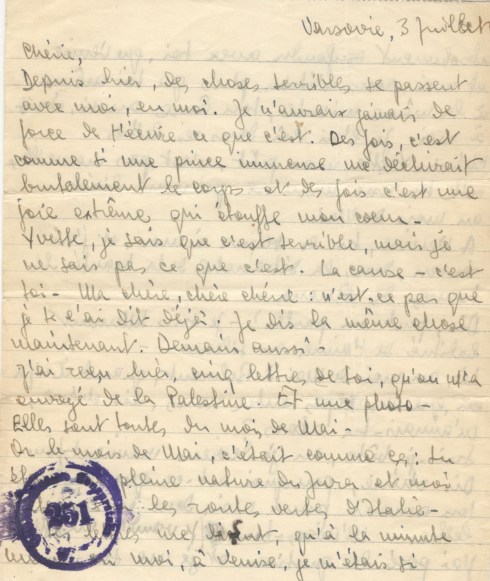 Varsovie, 3 juillet
Chérie,
Depuis hier, des choses terribles se passent
avec moi, en moi. Je n'aurais jamais de
force de t'écrire ce que c'est. Des fois, c'est
comme si une pince immense me déchirait
brutalement le corps et des fois c'est une
joie extrême qui étouffe mon coeur -
Yvette, je sais que c'est terrible, mais je
ne sais pas ce que c'est. La cause - c'est
toi - Ma chère, chère chérie : n'est-ce pas que
je te l'ai dit déjà. Je dis la même chose
maintenant. Demain aussi -
J'ai reçu hier, cinq lettres de toi, qu'on m'a
envoyé de la Palestine. Et une photo -
Elles sont toutes du mois de Mai -
Or le mois de Mai, c'était comme ça : tu
pleine nature du Jura et moi
les routes vertes d'Italie -
me disent, qu'à la minute
moi, à Venise, je m'étais si
251